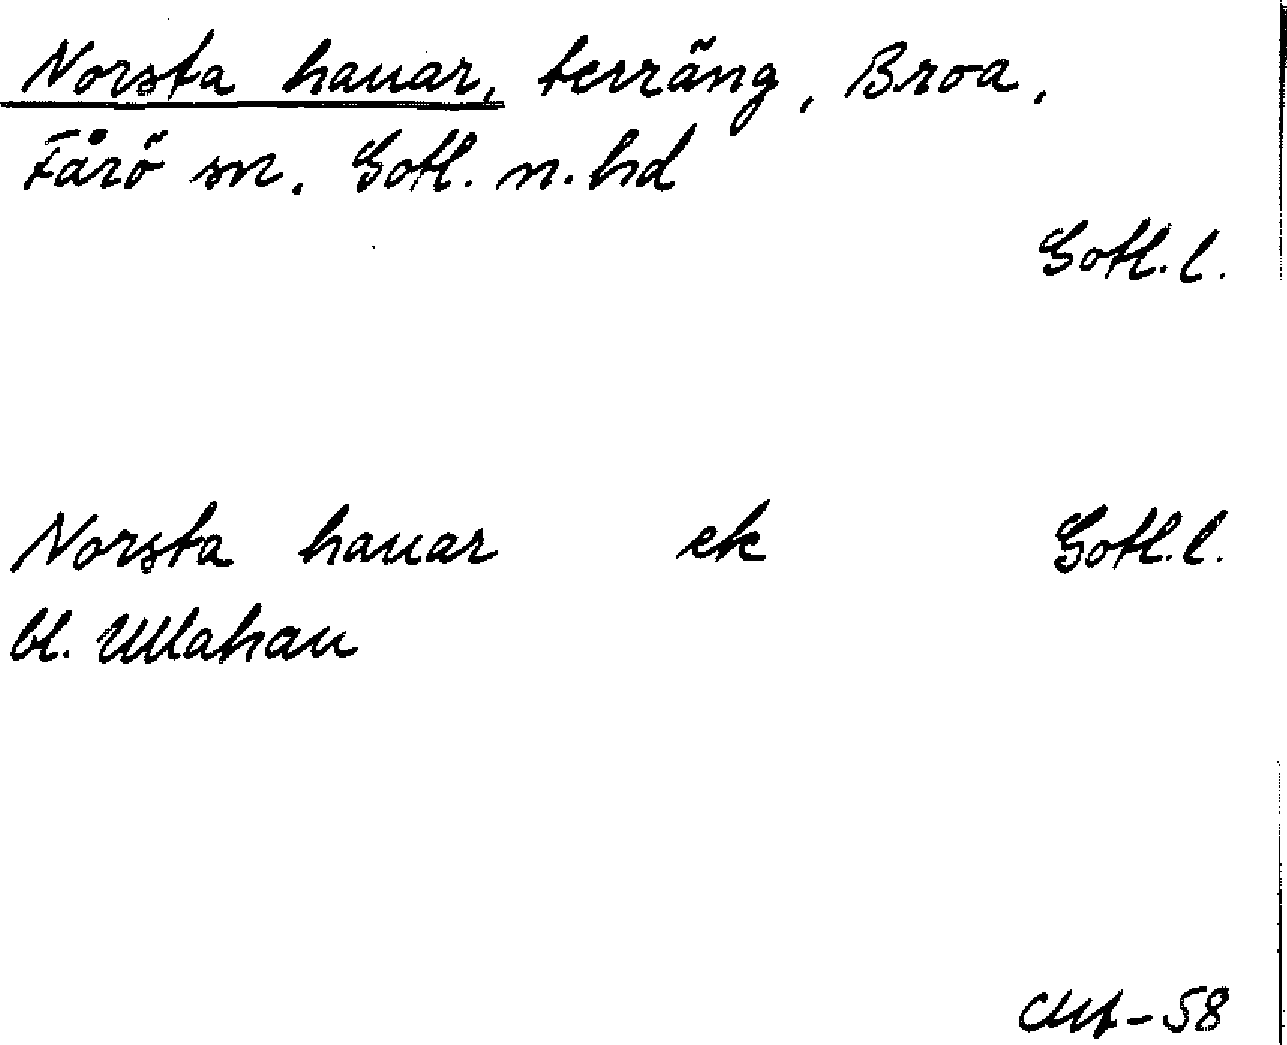 Norsta hauar, terräng, Broa,
Fårö sn. Gotl. n. hd
Gotl. l.
Norsta hauar ek Gotl. l.
bl. Ullahau